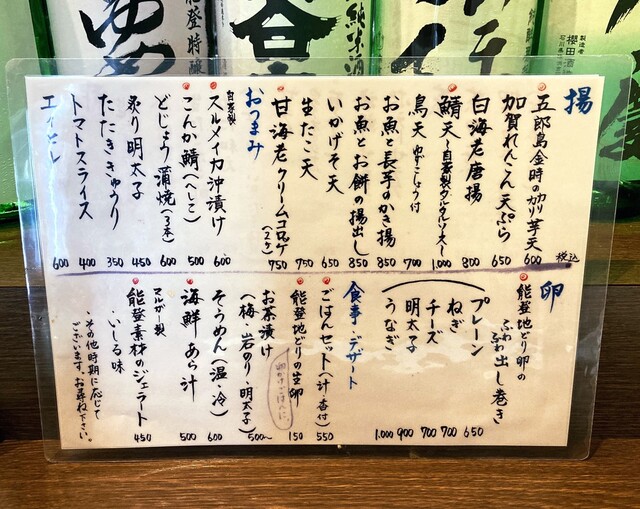 揚
五郎島金時のカリカリ芋天 600
加賀れんこん天ぷら 650
白海老唐揚 800
鯖天〜自家製タルタルソース〜 1,000
鳥天 ゆずこしょう付 700
お魚と長芋のかき揚 850
お魚とお餅の揚出し 850
いかげそ天 650
生たこ天 750
甘海老クリームコロッケ(2ケ) 750
おつまみ
自家製
スルメイカ沖漬け 600
こんか鯖(へしこ) 500
どじょう蒲焼(3本) 600
炙り明太子 450
たたききゅうり 350
トマトスライス 400
エイヒレ 600
税込
卵
能登地どり卵の
ふわふわ出し巻き
プレーン 650
ねぎ 700
チーズ 700
明太子 900
うなぎ 1,000
食事・デザート
ごはんセット(汁・香付) 550
能登地どりの生卵 150
卵かけごはんに
お茶漬け
(梅・岩のり・明太子) 500〜
そうめん(温・冷) 600
海鮮あら汁 500
マルガー製
能登素材のジェラート 450
・いしる味
・その他時期に応じて
ございます。お尋ね下さい。
純米酒
櫻田